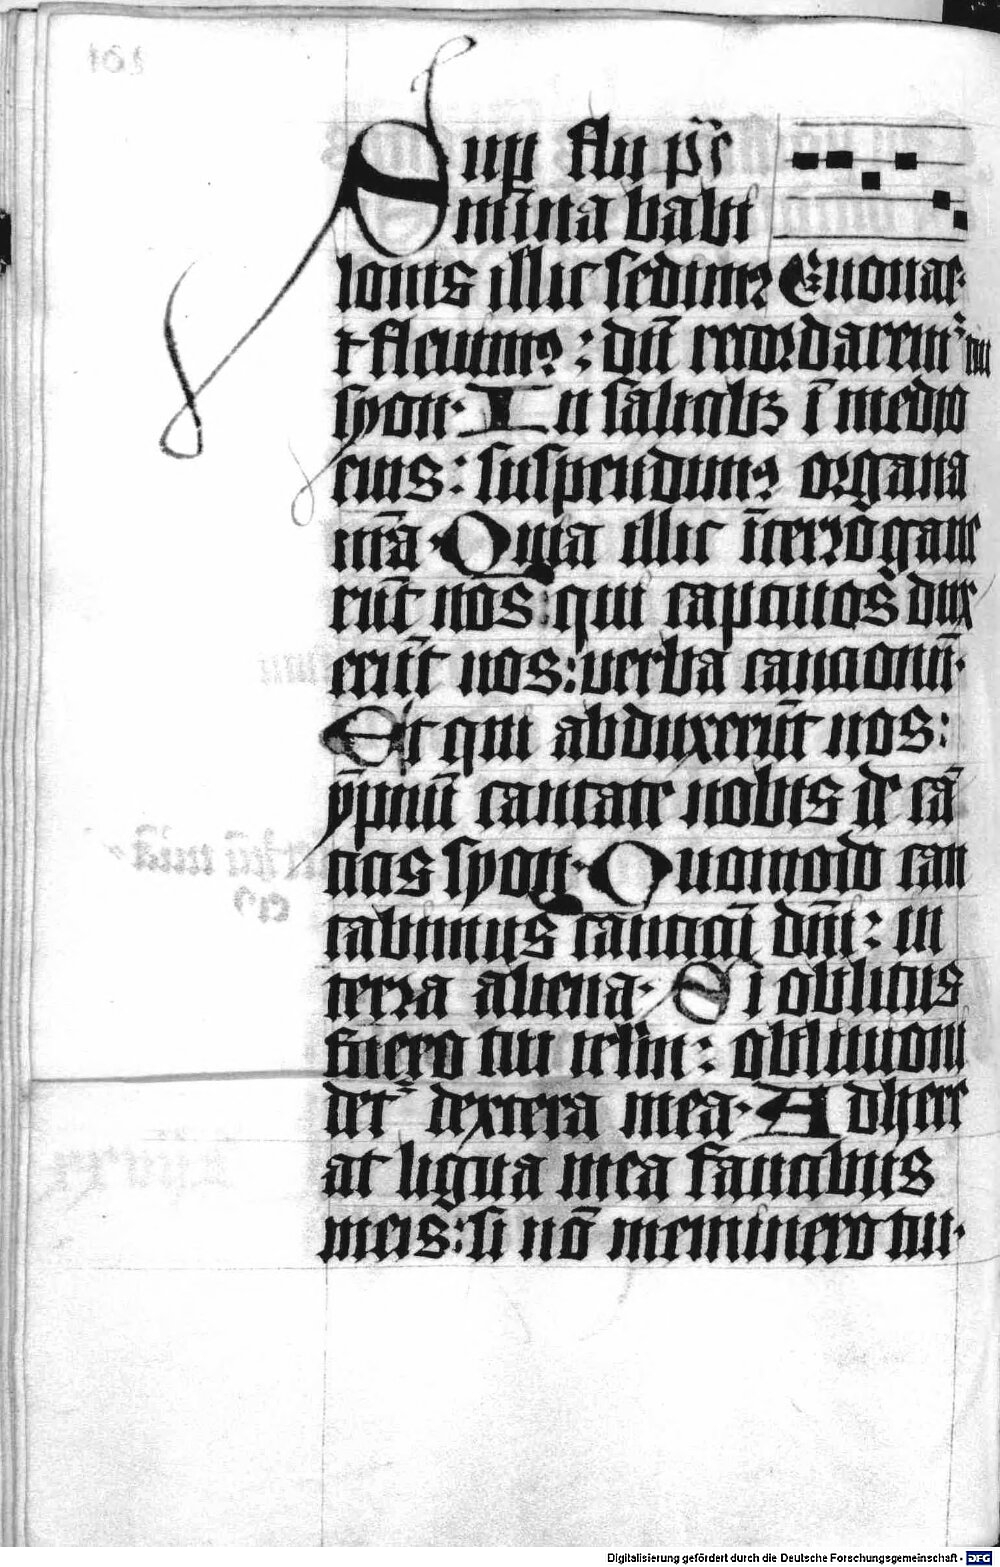 Sup̱ flu p̄s
mīna babi
lonis illic sedimꝰ Euouae.
⁊ fleuimꝰ: dū recordaremᷣ tui
syon. In salicibꝫ ī medio
eius: suspendimꝰ organa
nr̄a. Quia illic īterrogaue
rūt nos: qui captiuos dux
erūt nos: verba cancionū.
Et qui abduxerūt nos:
ympnū cantate nobis de cā
ticis syon. Quomodo can
tabimus canticū dn̄i: in
terra aliena. Si oblitus
fuero tui ierlm̄: obliuioni
detᷣ dextera mea. Adhere
at ligua mea faucibus
meis: si nō meminero tui.
Digitalisierung gefördert durch die Deutsche Forschungsgemeinschaft - DFG